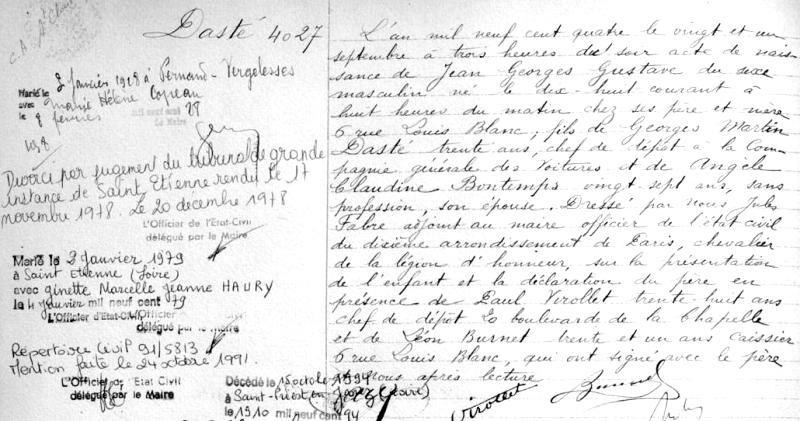 Dasté 4027
Marié le 3 janvier 1928 à Pernand-Vergelesses
avec Marie Hélène Copeau
le 8 février 28
Le Maire
Divorcé par jugement du tribunal de grande
instance de Saint Etienne rendu le 17
novembre 1978. Le 20 decembre 1978
L'Officier de l'Etat-Civil
délégué par le Maire
Marié le 3 janvier 1979
à Saint Etienne (Loire)
avec Ginette Marcelle Jeanne HAURY
le 4 janvier mil neuf cent 79
L'Officier d'Etat-Civil
délégué par le Maire
Répertoire Civil 91/5813
Mention faite le 24 octobre 1991.
L'Officier de l'Etat Civil
délégué par le Maire
Décédé le 15 octobre 1994
à Saint-Priest-en-Jarez (Loire)
le 19 10 mil neuf cent 94
L'an mil neuf cent quatre le vingt et un
septembre à trois heures du soir acte de nais-
sance de Jean Georges Gustave du sexe
masculin né le dix-huit courant à
huit heures du matin chez ses père et mère
6 rue Louis Blanc; fils de Georges Martin
Dasté trente ans, chef de dépôt à la Com-
pagnie générale des Voitures et de Angèle
Claudine Bontemps vingt-sept ans, sans
profession, son épouse. Dressé par nous Jules
Fabre adjoint au maire officier de l'état civil
du dixième arrondissement de Paris, chevalier
de la légion d'honneur, sur la présentation
de l'enfant et la déclaration du père en
présence de Paul Virollet trente-huit ans
chef de dépôt 20 boulevard de la Chapelle
et de Léon Burnet trente et un ans caissier
6 rue Louis Blanc, qui ont signé avec le père
et nous après lecture
Virollet Burnet